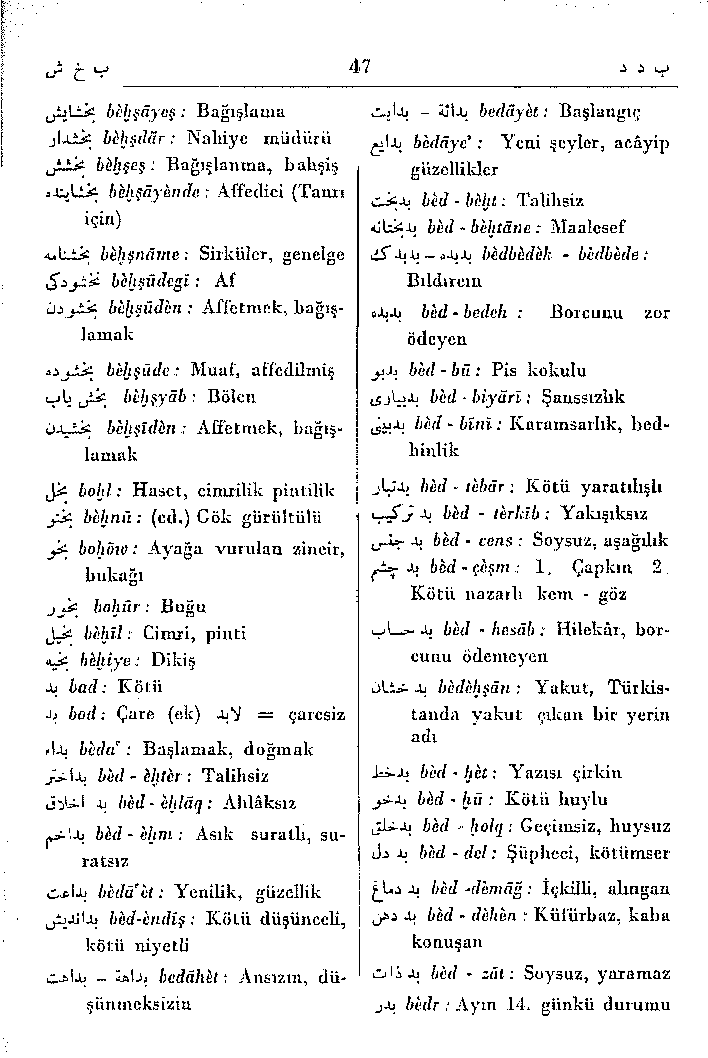 ب خ ش 47 ب د د
بخشایش bèḫşāyeş : Bağışlama
بخشدار bèḫşdār : Nahiye müdürü
بخشش bèḫşeş : Bağışlanma, bahşiş
بخشاینده bèḫşāyènde : Affedici (Tanrı
için)
بخشنامه bèḫşnāme : Sirküler, genelge
بخشودگی bèḫşūdegī : Af
بخشودن bèḫşūdèn : Affetmek, bağış-
lamak
بخشوده bèḫşūde : Muaf, affedilmiş
بخش یاب bèḫşyāb : Bölen
بخشیدن bèḫşīdèn : Affetmek, bağış-
lamak
بخل boḫl : Haset, cimrilik pintilik
بخنو bèḫnū : (ed.) Gök gürültülü
بخو boḫōw : Ayağa vurulan zincir,
bukağı
بخور boḫūr : Buğu
بخیل bèḫīl : Cimri, pinti
بخیه bèḫiye : Dikiş
بد bad : Kötü
بد bod : Çare (ek) لابد = çaresiz
بداء bèda' : Başlamak, doğmak
بداختر bèd - èḫtèr : Talihsiz
بد اخلاق bèd - èḫlāq : Ahlâksız
بداخم bèd - èḫm : Asık suratlı, su-
ratsız
بداعت bèdā'èt : Yenilik, güzellik
بداندیش bèd-èndīş : Kötü düşünceli,
kötü niyetli
بداهة – بداهت bedāhèt : Ansızın, dü-
şünmeksizin
بدائة – بدایت bedāyèt : Başlangıç
بدایع bèdāye' : Yeni şeyler, acâyip
güzellikler
بدبخت bèd - bèḫt : Talihsiz
بدبختانه bèd - bèḫtāne : Maalesef
بدبدك – بدبده bèdbèdèk - bèdbède :
Bıldırcın
بدبده bèd - bedeh : Borcunu zor
ödeyen
بدبو bèd - bū : Pis kokulu
بدبیاری bèd - biyārī : Şanssızlık
بدبینی bèd - bīnī : Karamsarlık, bed-
binlik
بدتبار bèd - tèbār : Kötü yaratılışlı
بد ترکیب bèd - tèrkīb : Yakışıksız
بد جنس bèd - cens : Soysuz, aşağılık
بد چشم bèd - çèşm : 1. Çapkın 2.
Kötü nazarlı kem - göz
بد حساب bèd - hesāb : Hilekâr, bor-
cunu ödemeyen
بد خشان bèdèḫşān : Yakut, Türkis-
tanda yakut çıkan bir yerin
adı
بدخط bèd - ḫèt : Yazısı çirkin
بدخو bèd - ḫū : Kötü huylu
بدخلق bèd - ḫolq : Geçimsiz, huysuz
بد دل bèd - del : Şüpheci, kötümser
بد دماغ bèd -dèmāğ : İçkilli, alıngan
بد دهن bèd - dèhèn : Küfürbaz, kaba
konuşan
بد ذات bèd - zāt : Soysuz, yaramaz
بدر bèdr : Ayın 14. günkü durumu